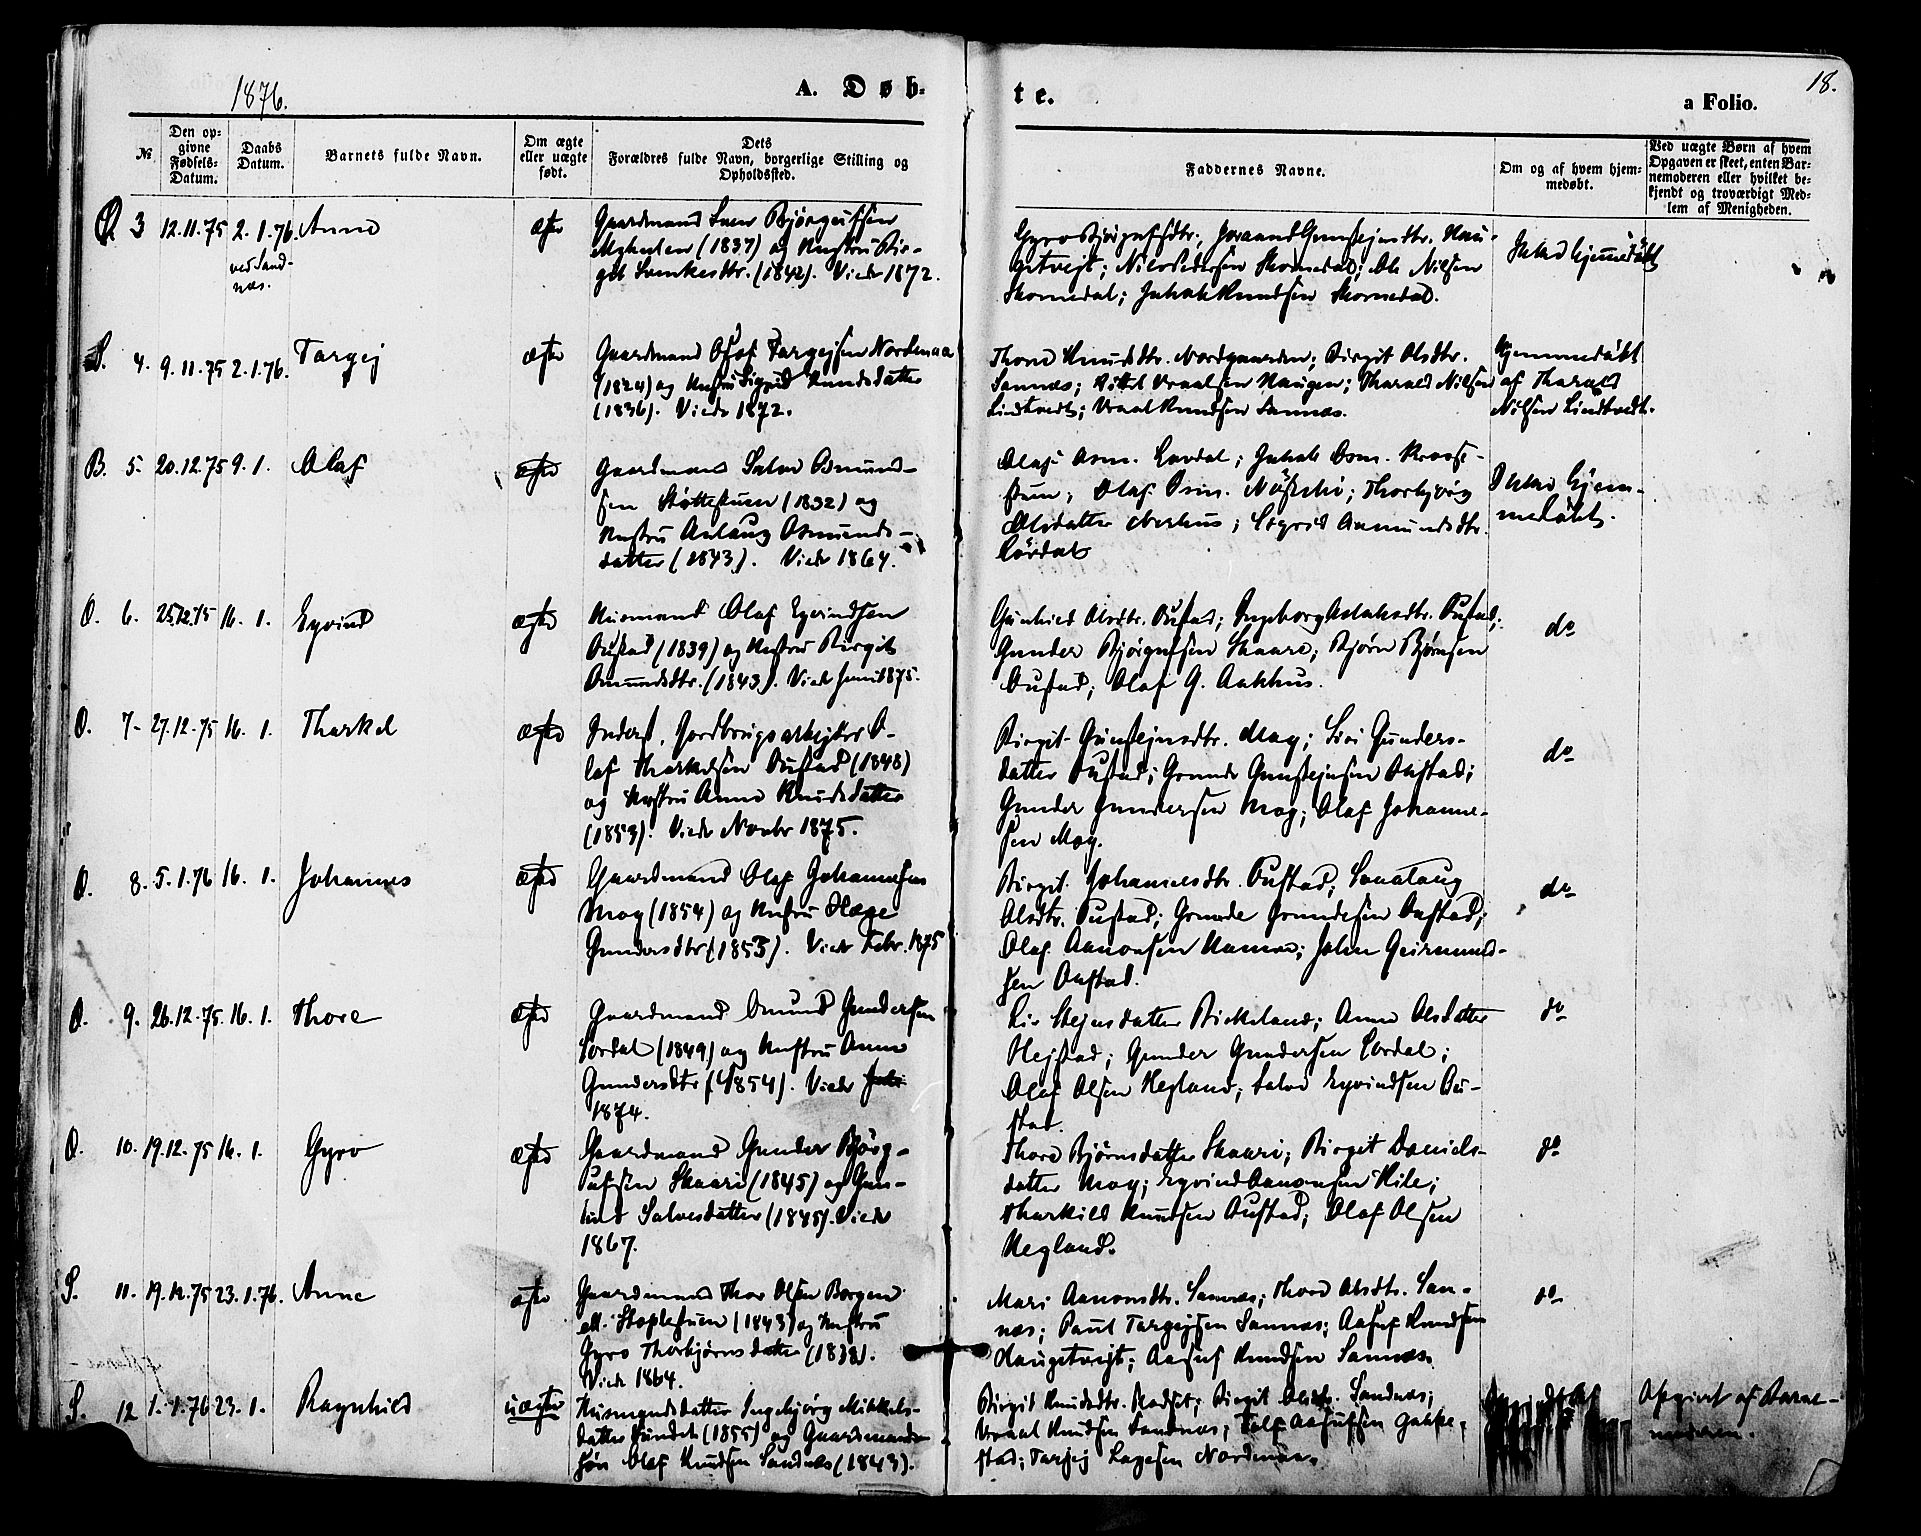 1876.
A. Døb-
te.
18.
a Folio.
№
Den op-
givne
Fødsels-
Datum.
Daabs
Datum.
Barnets fulde Navn.
Om ægte
eller uægte
født.
Dets
Forældres fulde Navn, borgerlige Stilling og
Opholdssted.
Faddernes Navne.
Om og af hvem hjem-
medøbt.
Ved uægte Børn af hvem
Opgaven er skeet, enten Bar-
nemoderen eller hvilket be-
kjendt og troværdigt Med-
lem af Menigheden.
3 12.11.75 2.1.76. Anne
ved Sand-
næs.
ægte
Gaardmand Sven Bjørgufsen
(1837) og Kustru Bir-
git (1842). Viede 1872.
Gyro Bjørgufsdtr.; Joraand Gunstejnsdtr. Hau-
getvejt; Nils Pedersen Skomedal; Ole Nilsen
Skomedal; Knudsen Skomedal.
Ikke hjemmedøbt
S. 4. 9.11.75 2.1.76. Targej
ægte
Gaardmand Olof Targejsen Nordenaa
(1824) og Kustru Sigrid Knudsdatter
(1836). Viede 1872.
Thore Knudsdtr. Nordgaarden; Birgit Olsdtr.
Sannæs; Kittel Vraalsen Haugen; Tharald Nilsen
Lindtvedt; Vraal Knudsen Sannæs.
Hjemmedøbt
af Tharald
Nilsen Lindtvedt.
B. 5. 20.12.75 9.1. Olaf
ægte
Gaardmand Salve Osmund-
sen Støttestuen (1832) og
Kustru Aslaug Osmunds-
datter (1843). Viede 1864.
Olaf Osm. Lovdal; Osm.
Olaf Osm.; Thorbjørg
Olsdatter Nerhus; Sigrid Aamundsdtr.
Ikke hjem-
medøbt.
O. 6. 25.12.75 16.1. Eyvind
ægte
Husmand Olaf Eyvindsen
Oustad (1839) og Kustru Birgit
Omundsdtr. (1843). Viede Juni 1875.
Gunhild Olsdtr. Oustad; Ingeborg Aslaksdtr. Oustad;
Gunder Bjørgufsen Skaare; Bjørn Bjørnsen
Oustad; Olaf G. Aakhus.
do
O. 7- 27.12.75 16.1. Tharkel
ægte
Inderst, Jordbrugsarbejder O-
laf Tharkelsen Oustad (1848)
og Kustru Anne Knudsdatter
(1853). Viede Novbr 1875.
Birgit Gunstejnsdtr. Moy; Siri Gunders-
datter Oustad; Gunstejnsen Oustad;
Gunder Gundersen Moy; Olaf Johanne-
sen Moy.
do
O. 8. 5.1.76 16.1. Johannes
ægte
Gaardmand Olaf Johannesen
Moy (1854) og Kustru Hæge
Gundersdtr (1853). Viede Febr. 1875
Birgit Johannesdtr. Oustad;
Olsdtr. Oustad; Oustad;
Olaf Aanonsen; John Geirmund-
sen Oustad.
do
O. 9. 26.12.75. 16.1. Thore
ægte
Gaardmand Omund Gundersen
Lordal (1849) og Kustru Anne
Gundersdtr (1854). Viede
1874.
Liv Stejnsdatter Birkeland; Anne Olsdatter
Hejstad; Gunder Gundersen Lordal;
Olaf Olsen Hegland; Salve Eyvindsen Ou-
stad.
do
O. 10. 19.12.75 16.1. Gyro
ægte
Gaardmand Gunder Bjørg-
ufsen Skaare (1845) og Gun-
hild Salvesdatter (1845). Viede
1867.
Thore Bjørnsdatter Skaare; Birgit Daniels-
datter Moy; Eyvind Aanonsen Kile;
Tharkild Knudsen Oustad; Olaf Olsen
Hegland.
do
S. 11. 19.12.75 23.1.76. Anne
ægte
Gaardmand Thor Olsen Borgen
ell. Stoplestuen (1843) og Kustru
Gyro Thorbjørnsdatter (1838).
Viede 1864.
Mari Aanonsdtr. Sannæs; Thore Olsdtr. San-
næs; Paul Targejsen Sannæs; Aasuf Knudsen
Haugetvejt; Aasuf Knudsen Sannæs.
do
S. 12 1.1.76 23.1. Ragnhild
uægte
Husmandsdatter Ingebjørg Mikkels-
datter (1855) og Gaardmands-
søn Olaf Knudsen Sandnæs (1843).
Birgit Knudsdtr.; Birgit Olsdtr. Sandnæs;
Vraal Knudsen Sandnæs; Aasufsen
stad; Tarjej Nordenaa.
Opgivet af Barne-
moderen.